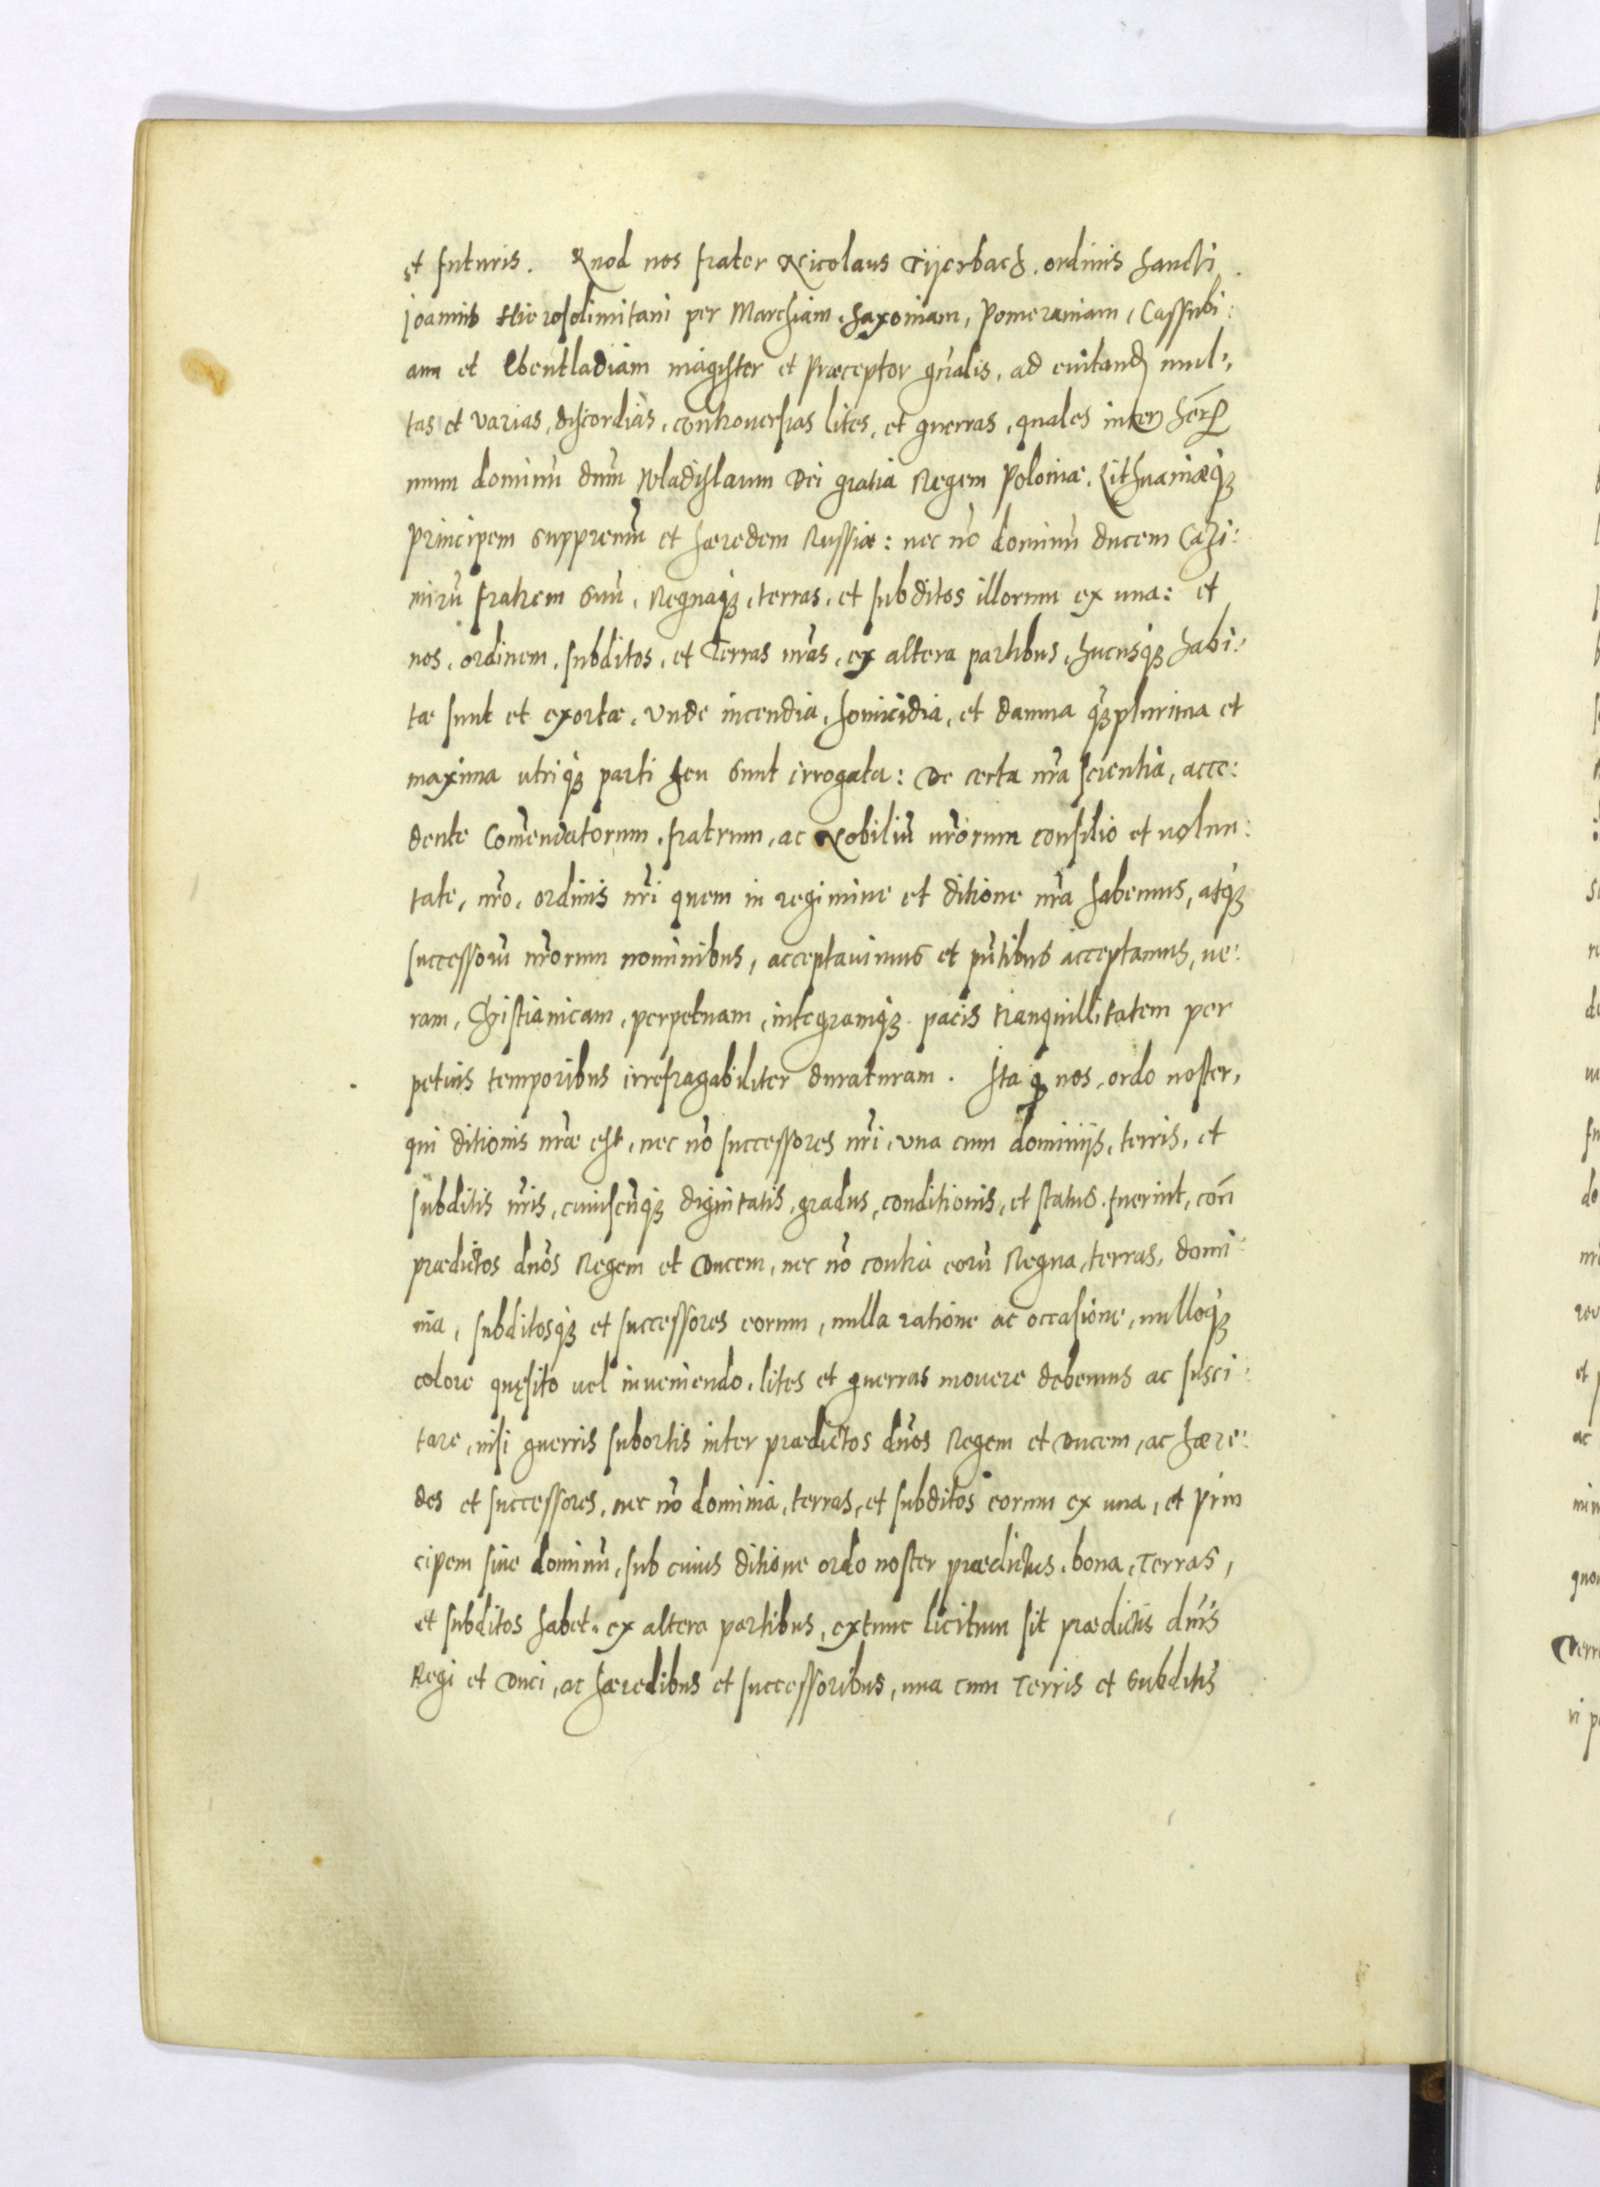 et futuris. Quod nos frater Nicolaus Tijerbach, ordinis sancti
Joannis Hierosolimitani per Marchiam, Saxoniam, Pomeraniam, Cassubi:
am et Wentladiam magister et Præceptor gñralis, ad evitand mul:
tas et varias, discordias, controuersias lites, et guerras, quales inter Ser
mum dominũ dnm Wladislaum Dei gratia Regem Poloniæ, Lithuaniæq3
principem suppremũ et hæredem Russiæ: nec nõ dominũ ducem Cazi:
mirũ fratrem suũ, Regnaq3, terras, et subditos illorum ex una: et
nos, ordinem, subditos, et Terras nras, ex altera partibus, hucusq3 habi:
tæ sunt et exortæ, Unde incendia, homicidia, et damna q3plurima et
maxima utriq3 parti heu sunt irrogata: De certa nra scientia, acce:
dente Comendatorum, fratrum, ac Nobiliũ nrorum consilio et volun:
tate, nro, ordinis nri quem in regimine et ditione nra habemus, atq3
successorũ nrorum nominibus, acceptavimus et pñtibus acceptamus, ve:
ram, Christianicam, perpetuam, integramq3 pacis tranquillitatem per
petuis temporibus irrefragabiliter duraturam. Ita q nos, ordo noster,
qui ditionis nræ est, nec nõ successores nri, una cum dominijs, terris, et
subditis nris, cuiuscũq3 dignitatis, gradus, conditionis, et status fuerint, con
prædictos dños Regem et Ducem, nec nõ contra eorũ Regna, terras, domi
nia, subditosq3 et successores eorum, nulla ratione ac occasione, nulloq3
colore quęsito vel inveniendo, lites et guerras movere debemus ac susci:
tare, nisi guerris subortis inter prædictos dños Regem et Ducem, ac hære:
des et successores, nec nõ dominia, terras, et subditos eorum ex una, et prin
cipem sive dominũ, sub cuius ditione ordo noster prædictus, bona, Terras,
et subditos habet, ex altera partibus, extunc licitum sit prædictis dnis
Regi et Duci, ac hæredibus et successoribus, una cum Terris et subditis